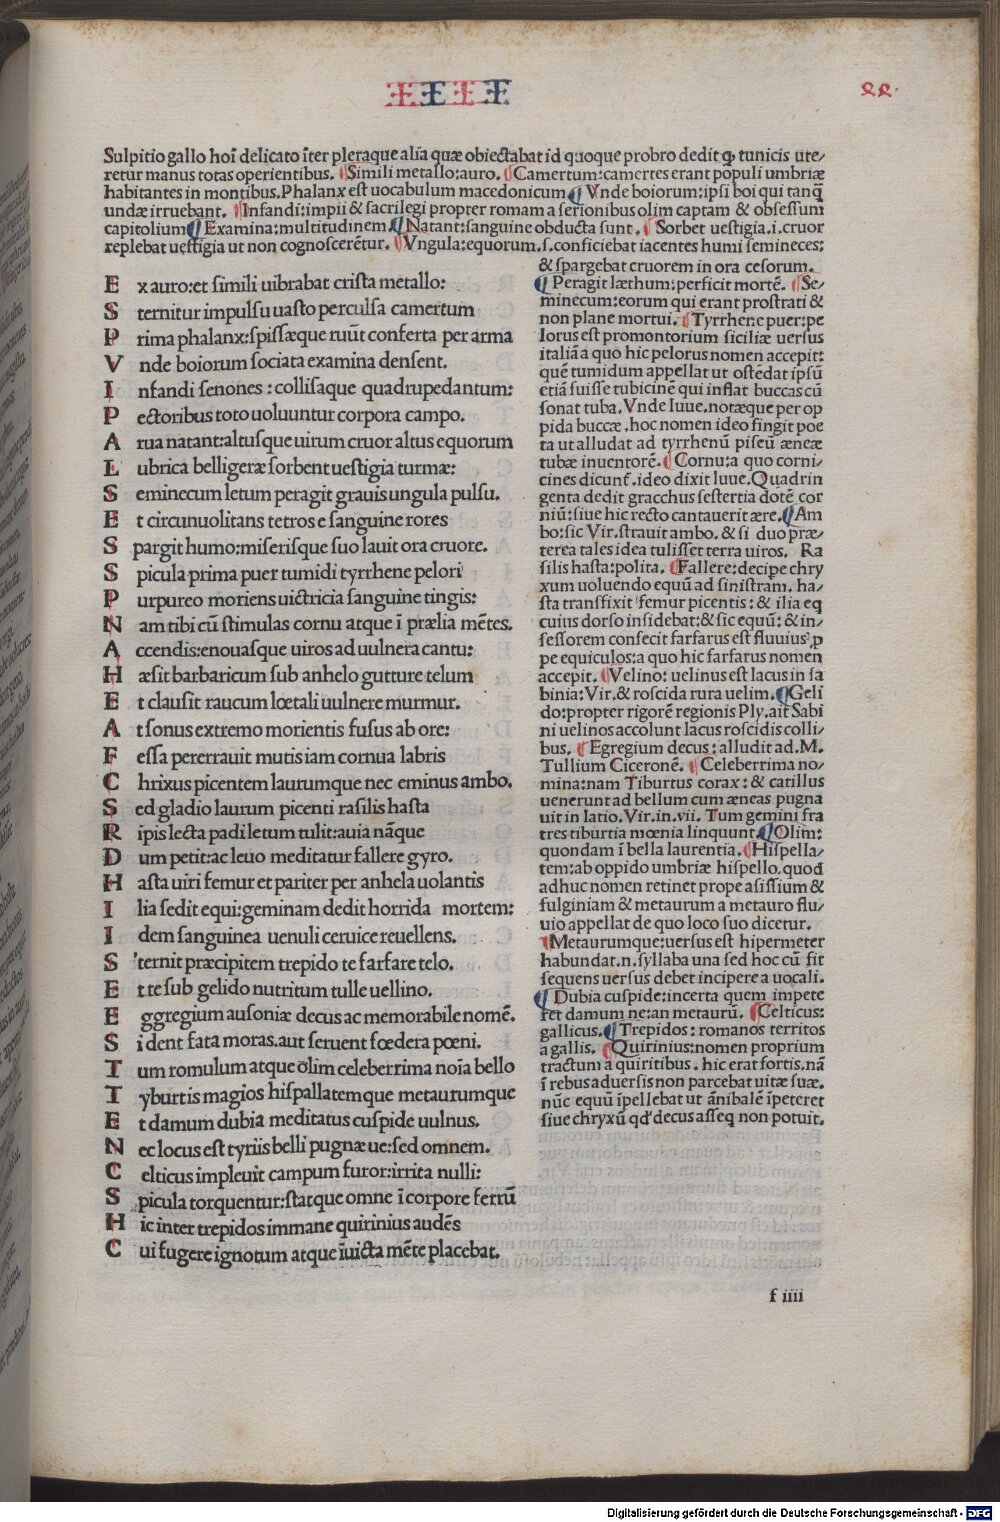 IIII
44.
Sulpitio gallo hoi delicato īter pleraque alia quæ obiectabat id quoque probro dedit ꝙ tunicis ute/
retur manus totas operientibus. ¶Simili metallo:auro. ¶Camertum:camertes erant populi umbriæ
habitantes in montibus.Phalanx est uocabulum macedonicum ¶ Vnde boiorum:ipsi boi qui tanꝙ
undæ irruebant. ¶Infandi:impii & sacrilegi propter romam a serionibus olim captam & obsessum
capitolium ¶ Examina:multitudinem.¶Natant:sanguine obducta sunt. ¶ Sorbet uestigia.i.cruor
replebat uestigia ut non cognoscerētur. ¶Vngula:equorum.s.conficiebat iacentes humi semineces:
& spargebat cruorem in ora cesorum.
E x auro:et simili uibrabat crista metallo:
S ternitur impulsu uasto perculsa camertum
P rima phalanx:spissæque ruūt conferta per arma
V nde boiorum sociata examina densent.
I nfandi senones : collisaque quadrupedantum:
P ectoribus toto uoluuntur corpora campo.
A rua natant:altusque uirum cruor altus equorum
L ubrica belligeræ sorbent uestigia turmæ:
S eminecum letum peragit grauis ungula pulsu.
E t circunuolitans tetros e sanguine rores
S pargit humo:miserisque suo lauit ora cruore.
S picula prima puer tumidi tyrrhene pelori
P urpureo moriens uictricia sanguine tingis:
N am tibi cū stimulas cornu atque ī prælia mētes.
A ccendis:enouasque uiros ad uulnera cantu:
H æsit barbaricum sub anhelo gutture telum
E t clausit raucum lœtali uulnere murmur.
A t sonus extremo morientis fusus ab ore:
F essa pererrauit mutis iam cornua labris
C hrixus picentem laurumque nec eminus ambo.
S ed gladio laurum picenti rasilis hasta
R ipis lecta padi letum tulit:auia nāque
D um petit:ac leuo meditatur fallere gyro.
H asta uiri femur et pariter per anhela uolantis
I lia sedit equi:geminam dedit horrida mortem:
I dem sanguinea uenuli ceruice reuellens.
S ternit præcipitem trepido te farfare telo.
E t te sub gelido nutritum tulle uellino.
E ggregium ausoniæ decus ac memorabile nomē.
S i dent fata moras.aut seruent fœdera pœni.
T um romulum atque olim celeberrima noīa bello
T yburtis magios hispallatemque metaurumque
E t damum dubia meditatus cuspide uulnus.
N ec locus est tyriis belli pugnæ ue:sed omnem.
C elticus impleuit campum furor:irrita nulli:
S picula torquentur:statque omne ī corpore ferrū
H ic inter trepidos immane quirinius audēs
C ui fugere ignotum atque īuicta mēte placebat.
¶ Peragit læthum:perficit mortē. ¶Se/
minecum:eorum qui erant prostrati &
non plane mortui. ¶Tyrrhene puer:pe
lorus est promontorium siciliæ uersus
italiā a quo hic pelorus nomen accepit:
quē tumidum appellat ut ostēdat ipsū
etiā fuisse tubicinē qui inflat buccas cū
sonat tuba. Vnde Iuue.notæque per op
pida buccæ.hoc nomen ideo fingit poe
ta ut alludat ad tyrrhenū piseū æneæ
tubæ inuentorē.¶Cornu:a quo corni/
cines dicunt.ideo dixit Iuue.Quadrin
genta dedit gracchus sestertia dotē cor
niū:siue hic recto cantauerit ære.¶Am
bo:sic Vir.strauit ambo.& si duo præ/
terea tales idea tulisset terra uiros. Ra
silis hasta:polita. ¶Fallere:decipe chry
xum uoluendo equū ad sinistram.ha/
sta transfixit femur picentis: & ilia eq
cuius dorso insidebat:& sic equū: & in/
sessorem confecit farfarus est fluuius ꝓ
pe equiculos:a quo hic farfarus nomen
accepit. ¶Velino: uelinus est lacus in sa
binia:Vir.& roscida rura uelim.¶Geli
do:propter rigorē regionis Ply.ait Sabi
ni uelinos accolunt lacus roscidis colli/
bus. ¶Egregium decus: alludit ad.M.
Tullium Ciceronē. ¶Celeberrima no/
mina:nam Tiburtus corax: & catillus
uenerunt ad bellum cum æneas pugna
uit in latio.Vir.in.vii. Tum gemini fra
tres tiburtia mœnia linquunt ¶Olim:
quondam ī bella laurentia.¶Hispella/
tem:ab oppido umbriæ hispello.quod
adhuc nomen retinet prope asissium &
fulginiam & metaurum a metauro flu/
uio appellat de quo loco suo dicetur.
¶Metaurumque:uersus est hipermeter
habundat.n.syllaba una sed hoc cū fit
sequens uersus debet incipere a uocali.
¶ Dubia cuspide:incerta quem impete
ret damum ne:an metaurū. ¶Celticus:
gallicus.¶Trepidos: romanos territos
a gallis. ¶Quirinius:nomen proprium
tractum a quiritibus.hic erat fortis.nā
ī rebus aduersis non parcebat uitæ suæ.
nūc equū īpellebat ut ānibalē īpeteret
siue chryxū qđ decus asseq non potuit.
f iiii
Digitalisierung gefördert durch die Deutsche Forschungsgemeinschaft - DFG